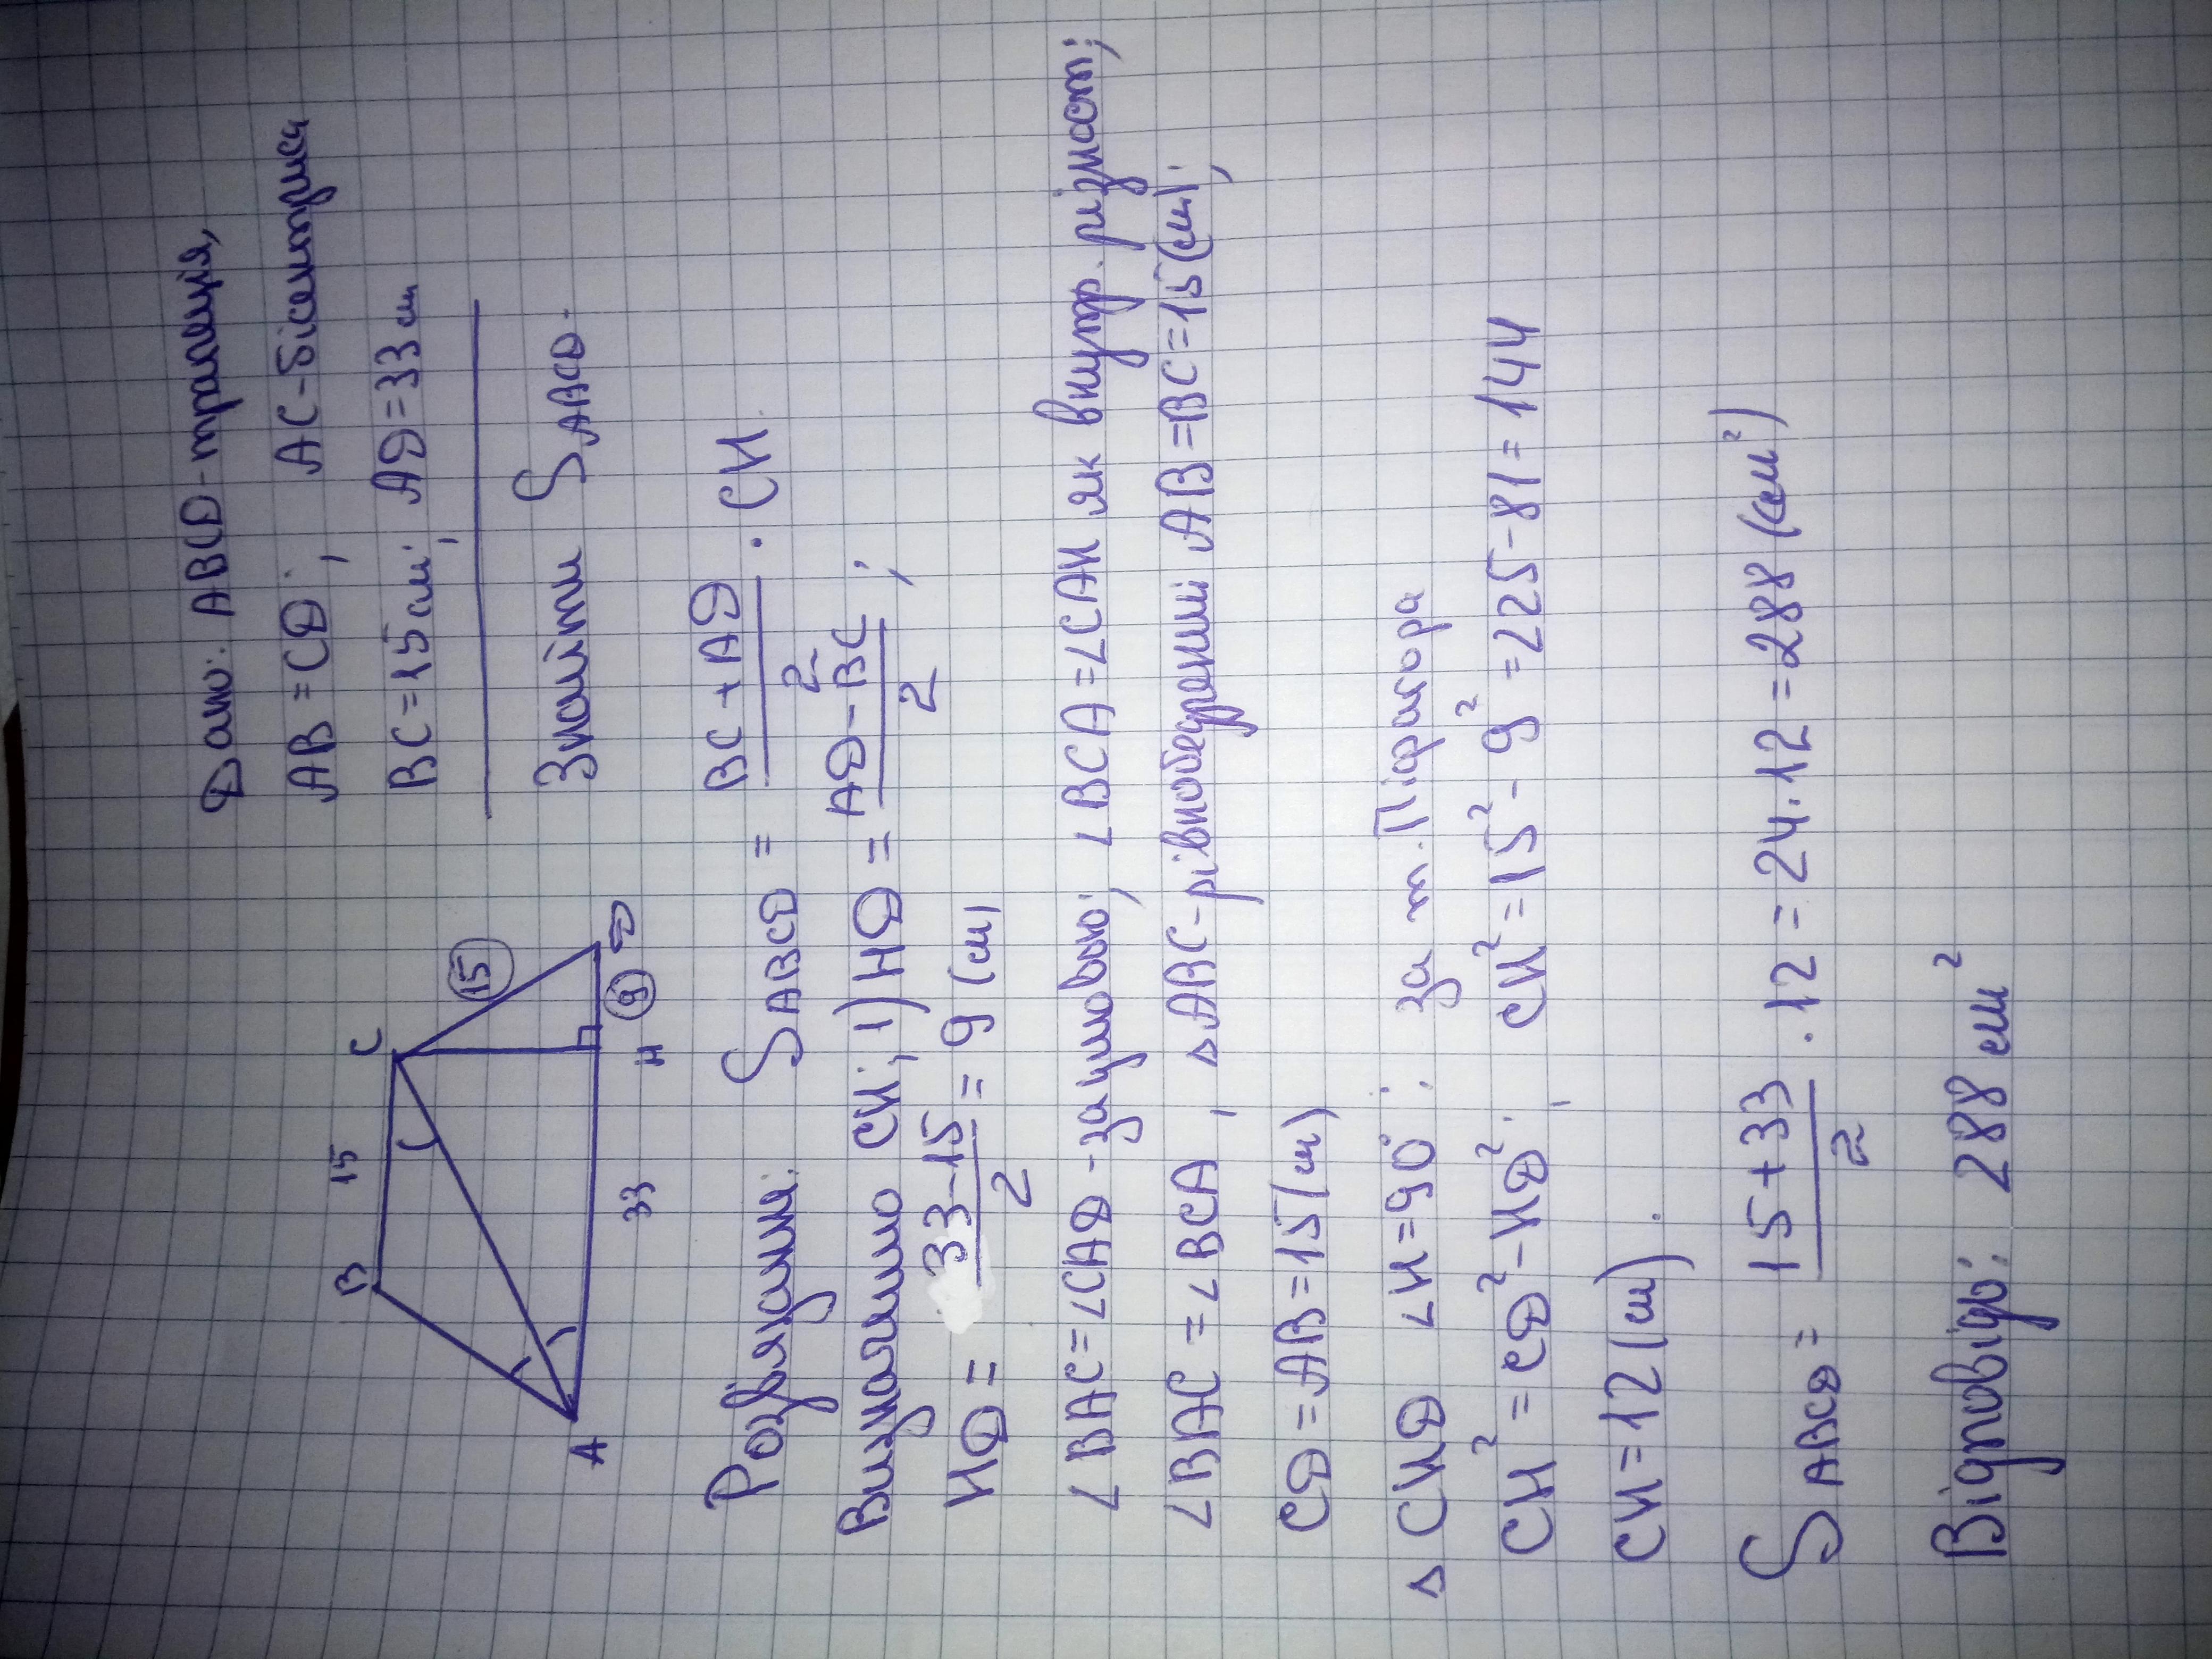 Дано: ABCD-трапеція,
AB = CD; AC-бісектриса
BC=15см; AD=33см
Знайти SABCD.
B 15 C
15
A 33 H 9 D
Розв'язання: SABCD = BC + AD / 2 · CH.
Визначимо CH; 1) HD = AD - BC / 2 ;
HD = 33-15 / 2 = 9 (см)
∠BAC=∠CAD-за умовою; ∠BCA=∠CAH як внутр. різност;
∠BAC = ∠BCA, △ABC-рівнобедрений AB=BC=15(см);
CD=AB=15(см)
△ CHD ∠H=90°; за т. Піфагора
CH²=CD²-HD²; CH²=15²-9²=225-81=144
CH=12(см).
SABCD = 15+33 / 2 · 12 = 24·12=288(см²)
Відповідь: 288 см²